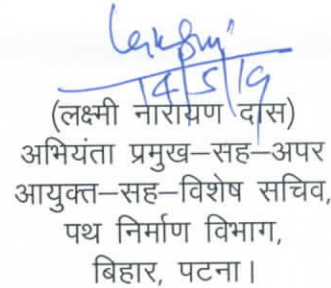 14/5/19
(लक्ष्मी नारायण दास)
अभियंता प्रमुख–सह–अपर
आयुक्त–सह–विशेष सचिव,
पथ निर्माण विभाग,
बिहार, पटना।